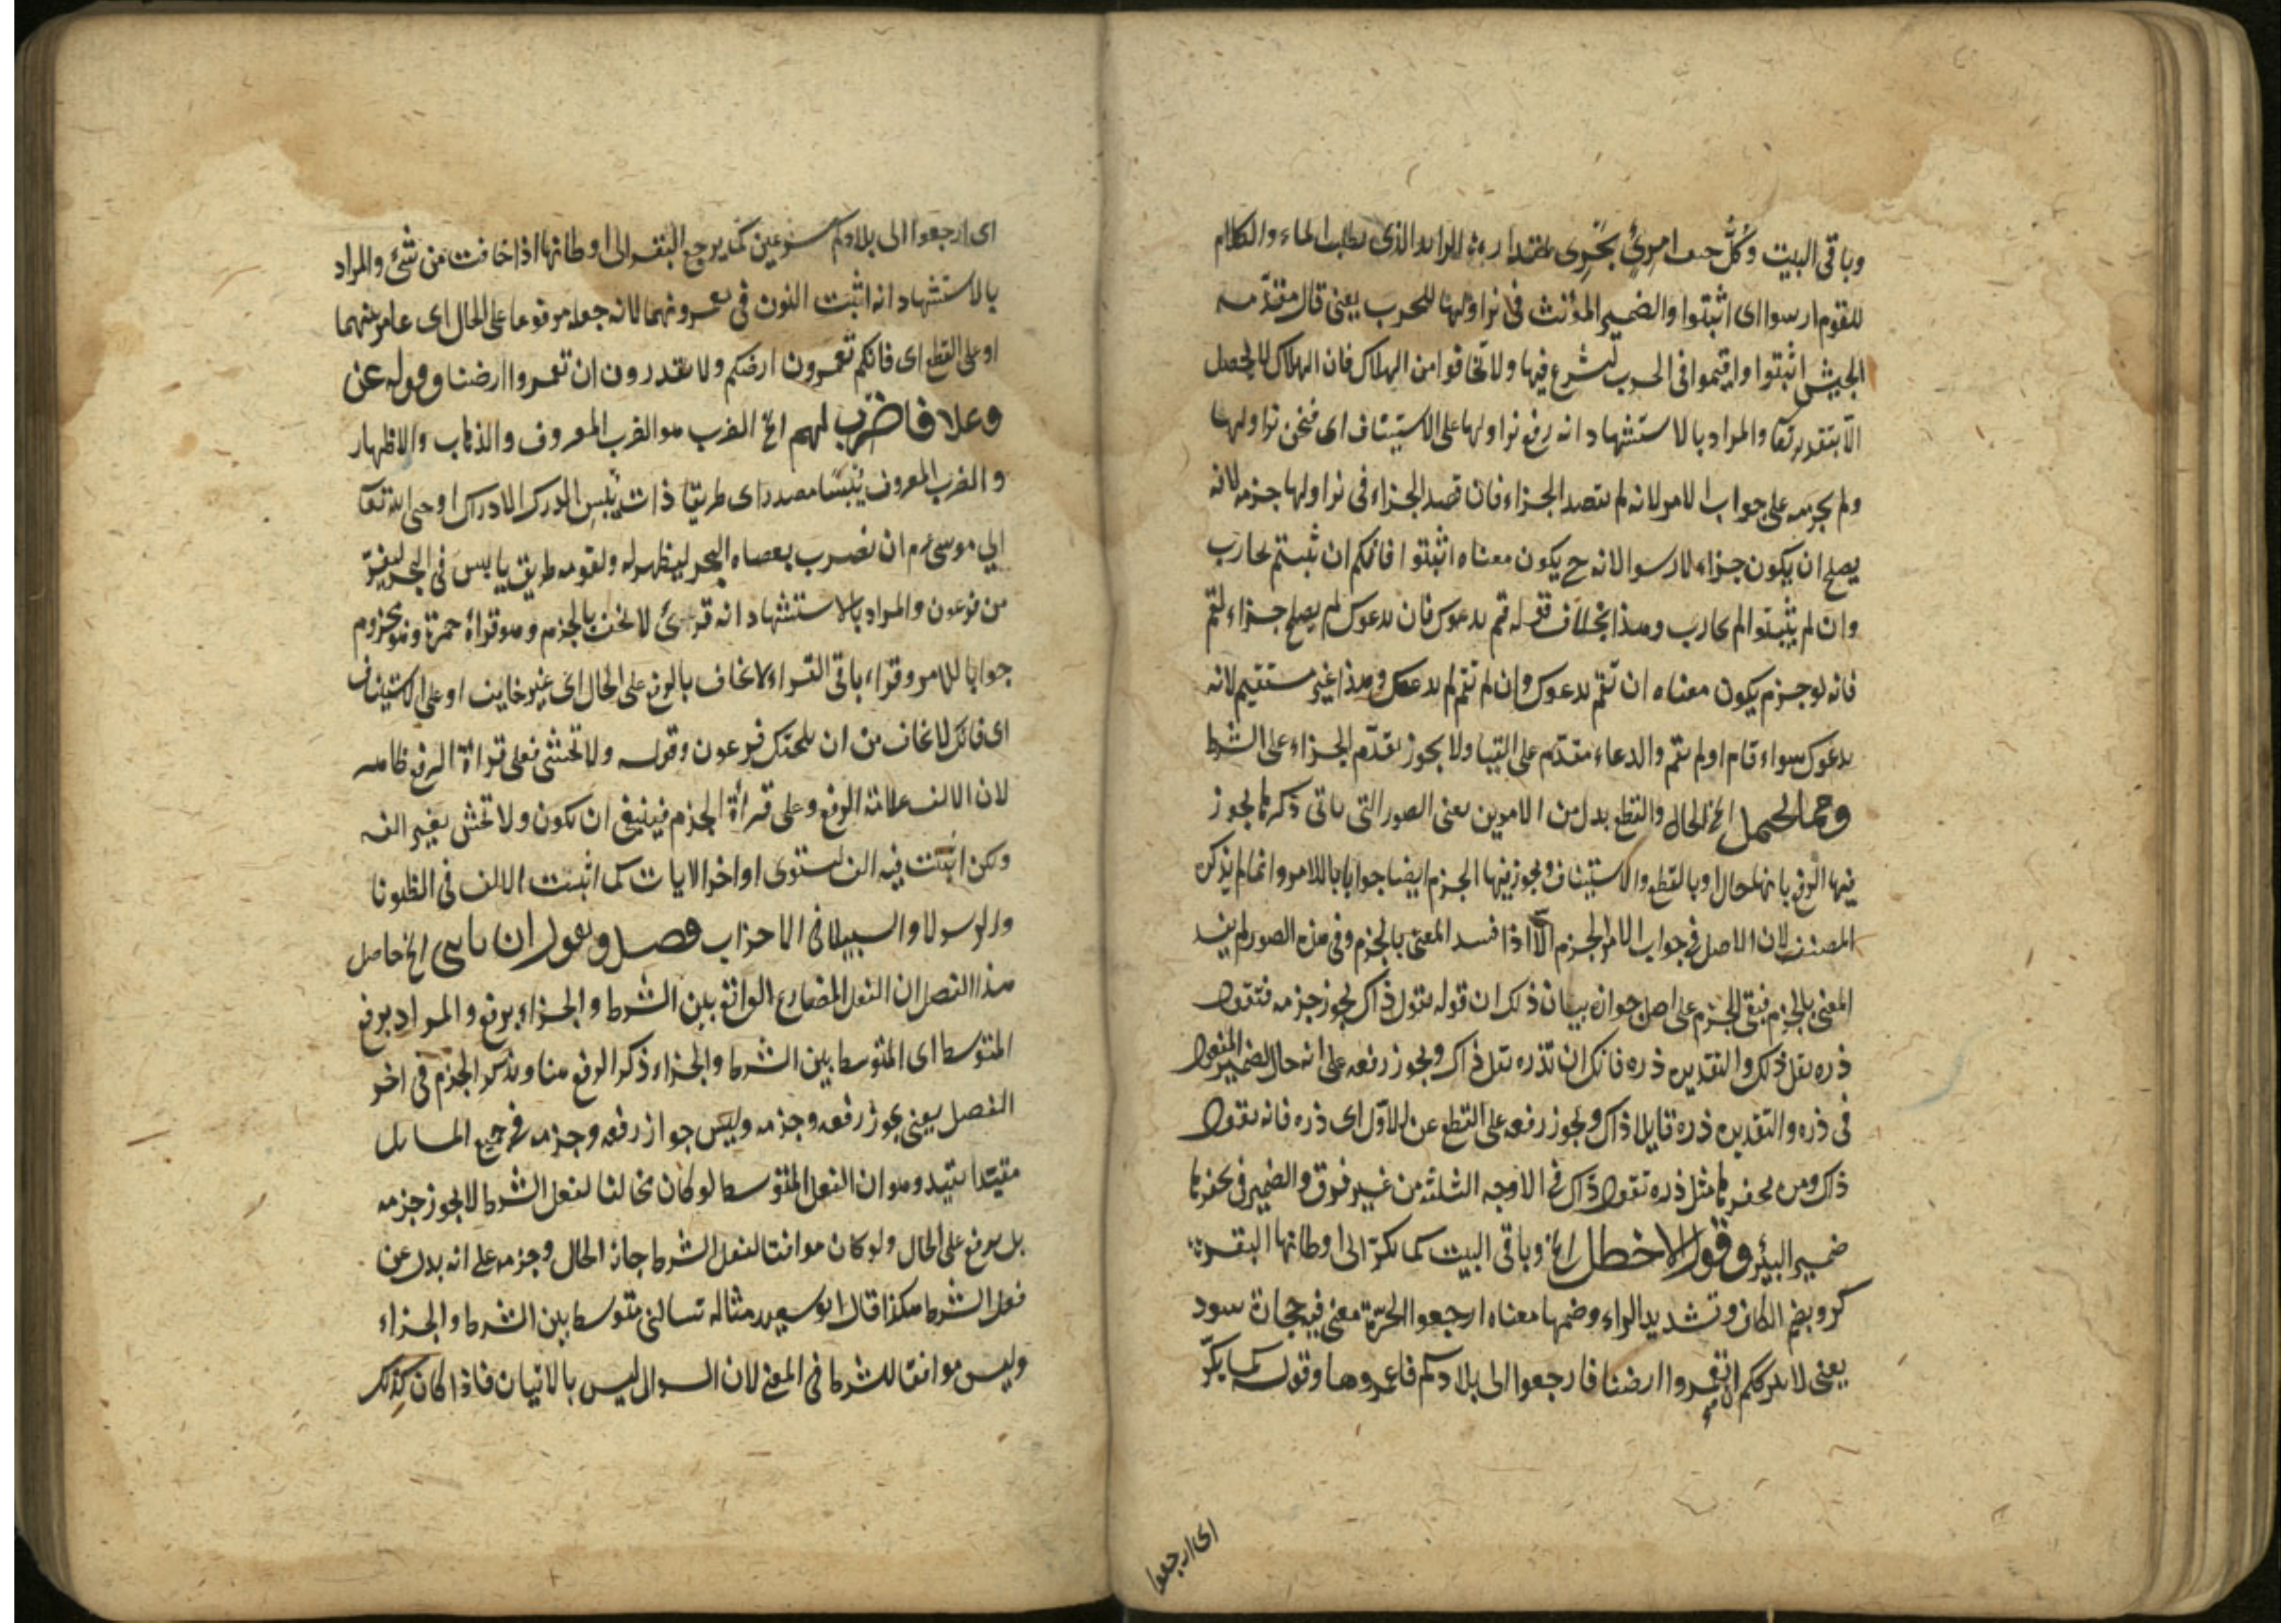 وباقى البيت وكل حتف امرئ يجرى بمقدار الرائد الذى يطلب الماء والكلام
للقوم ارسوا اى اثبتوا والضمير المؤنث فى نزاولها للحرب يعنى قال مقدمة
الجيش اثبتوا واقيموا فى الحرب لنشرع فيها ولا تخافوا من الهلاك فان الهلاك لا يحصل
الا بتقديره تعا والمراد بالاستشهاد انه رفع نزاولها على الاستيناف اى فنحن نزاولها
ولم يجزمه على جواب الامر لانه لم يقصد الجزاء فان قصد الجزاء فى نزاولها جزمه لانه
يصلح ان يكون جزاء لارسوا لانه ح يكون معناه اثبتوا فانكم ان ثبتم نحارب
وان لم يثبتوا لم نحارب وهذا بخلاف قوله قم يدعوك فان يدعوك لم يصلح جزاء لقم
فانه لو جزم يكون معناه ان تقم يدعوك وان لم تقم لم يدعك وهذا غير مستقيم لانه
يدعوك سواء قام او لم يقم والدعاء مقدم على القيام ولا يجوز تقدم الجزاء على الشرط
ومما يحتمل الخ الحال والقطع بدل من الامرين يعنى الصور التى ياتى ذكرها يجوز
فيها الرفع بانها حال او بالقطع والاستيناف ويجوز فيها الجزم ايضا جوابا للامر وانما لم يذكره
المصنف لان الاصل فى جواب الامر الجزم الا اذا فسد المعنى بالجزم وفى هذه الصور لم يفسد
المعنى بالجزم فبقى الجزم على اصل جوازه بيان ذلك ان قوله يقول ذاك يجوز جزمه فتقول
ذره يقل ذلك والتقدير ذره فانك ان تذره يقل ذاك ويجوز رفعه على انه حال لضمير المفعول
فى ذره والتقدير ذره قايلا ذاك ويجوز رفعه على القطع عن الاول اى ذره فانه يقول
ذاك ومره يحفرها مثل ذره يقول ذاك فى الاوجه الثلثة من غير فرق والضمير فى يحفرها
ضمير البئر وقول الاخطل الخ وباقى البيت كما تكر الى اوطانها البقر
كروا بضم الكاف وتشديد الراء وضمها معناه ارجعوا الحرة معنى فيه حجارة سود
يعنى لا يمكنكم ان تعمروا ارضنا فارجعوا الى بلادكم فاعمروها وقوله كما يكر
اى ارجعوا
اى ارجعوا الى بلادكم مسرعين كما يرجع البقر الى اوطانها اذا خافت من شئ والمراد
بالاستشهاد انه اثبت النون فى تعمرونهما لانه جعله مرفوعا على الحال اى عامريهما
او على القطع اى فانكم تعمرون ارضكم ولا تقدرون ان تعمروا ارضنا وقوله عن
وعلا فاضرب لهم الخ الضرب هو الضرب المعروف والذهاب والاظهار
والضرب المعروف يبسا مصدر اى طريقا ذات يبس الدرك الادراك اوحى الله تعا
الى موسى م ان يضرب بعصاه البحر ليظهر له ولقومه طريق يابس فى البحر ليفر
من فرعون والمراد بالاستشهاد انه قرئ لا تخف بالجزم وهو قراة حمزة وهو مجزوم
جوابا للامر وقراء باقى القراء لا تخاف بالرفع على الحال اى غير خايف او على الاستيناف
اى فانك لا تخاف من ان يلحقك فرعون وقوله ولا تخشى فعلى قراة الرفع ظاهر
لان الالف علامة الرفع وعلى قراة الجزم فينبغى ان يكون ولا تخش بغير الف
ولكن اثبتت فيه الف لتستوى اواخر الايات كما اثبتت الالف فى الظنونا
والرسولا والسبيلا فى الاحزاب فصل ويقول ان ياتنى الخ حاصل
هذا الفصل ان الفعل المضارع الواقع بين الشرط والجزاء يرفع والمراد يرفع
المتوسط اى المتوسط بين الشرط والجزاء ذكر الرفع هنا ويذكر الجزم فى اخر
الفصل يعنى يجوز رفعه وجزمه وليس جواز رفعه وجزمه فى جميع المسايل
مقيدا بقيد وهو ان الفعل المتوسط لو كان مخالفا لفعل الشرط لا يجوز جزمه
بل يرفع على الحال ولو كان موافقا لفعل الشرط جاز الحال وجزمه على انه بدل عن
فعل الشرط هكذا قال ابو سعيد مثاله تسالنى متوسط بين الشرط والجزاء
وليس موافقا للشرط فى المعنى لان السوال ليس بالاتيان فاذا كان كذلك